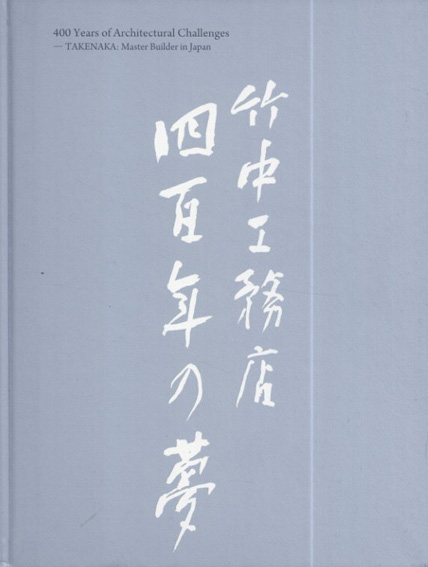 400 Years of Architectural Challenges
— TAKENAKA: Master Builder in Japan
竹中工務店
四百年の夢